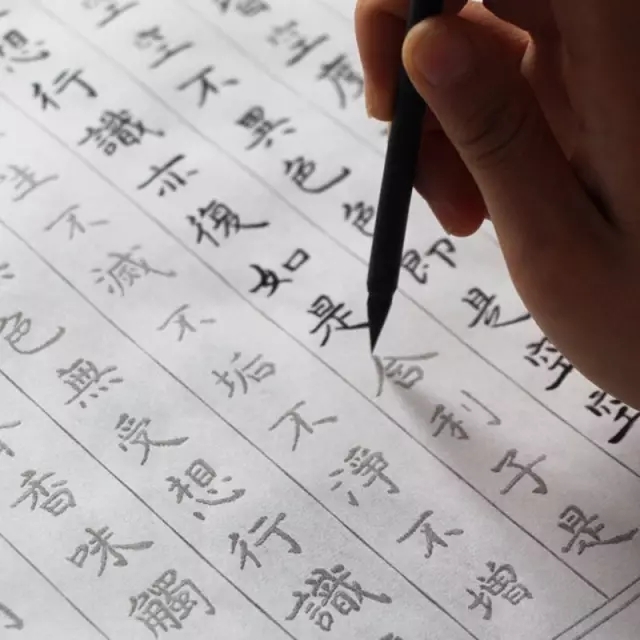 空度
空不異色色即是空空
想行識亦復如是舍利子是
生不滅不垢不淨不增
色無受想行識
香味觸